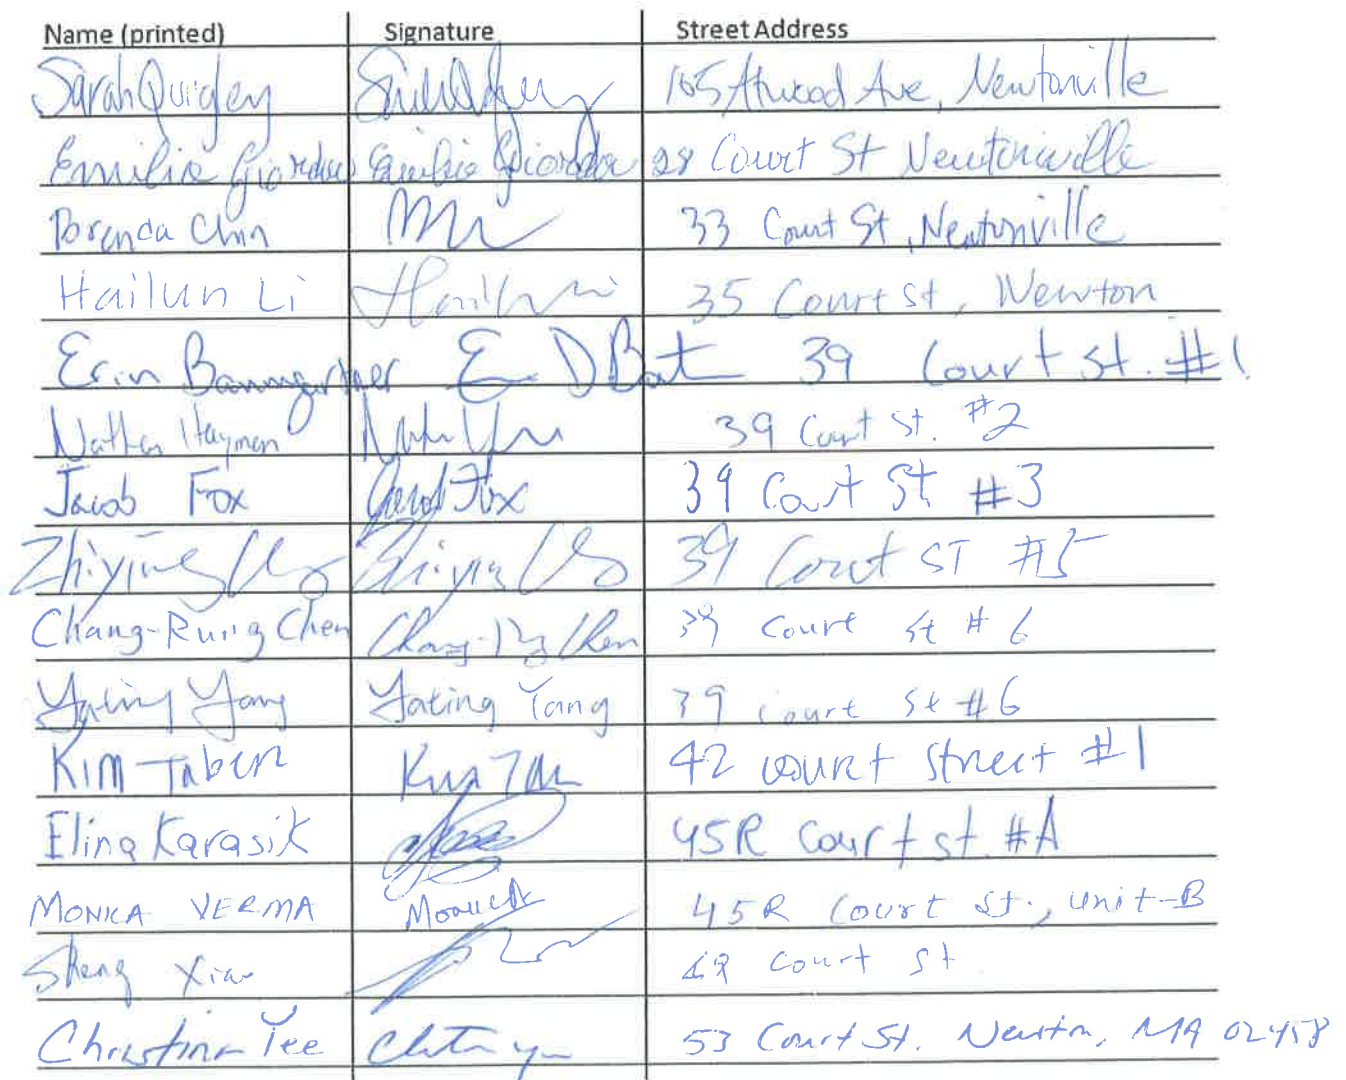 Name (printed) Signature Street Address
Sarah Quigley 105 Atwood Ave, Newtonville
Emilio Emilio 28 Court St Newtonville
Brenda Chin 33 Court St, Newtonville
Hailun Li 35 Court St, Newton
Erin Baumgartner E D 39 Court St. #1
Nathan Hayman 39 Court St. #2
Jacob Fox Jacob Fox 39 Court St #3
Zhiying 39 Court ST #5
Chang-Rung Chen Chang-Rung Chen 39 Court St #6
Yating Yang Yating Yang 39 Court St #6
Kim Taben 42 Court Street #1
Elina Karasik 45R Court st. #A
MONICA VERMA 45R Court St., Unit-B
Sheng Court St
Christina Yee 53 Court St. Newton, MA 02458